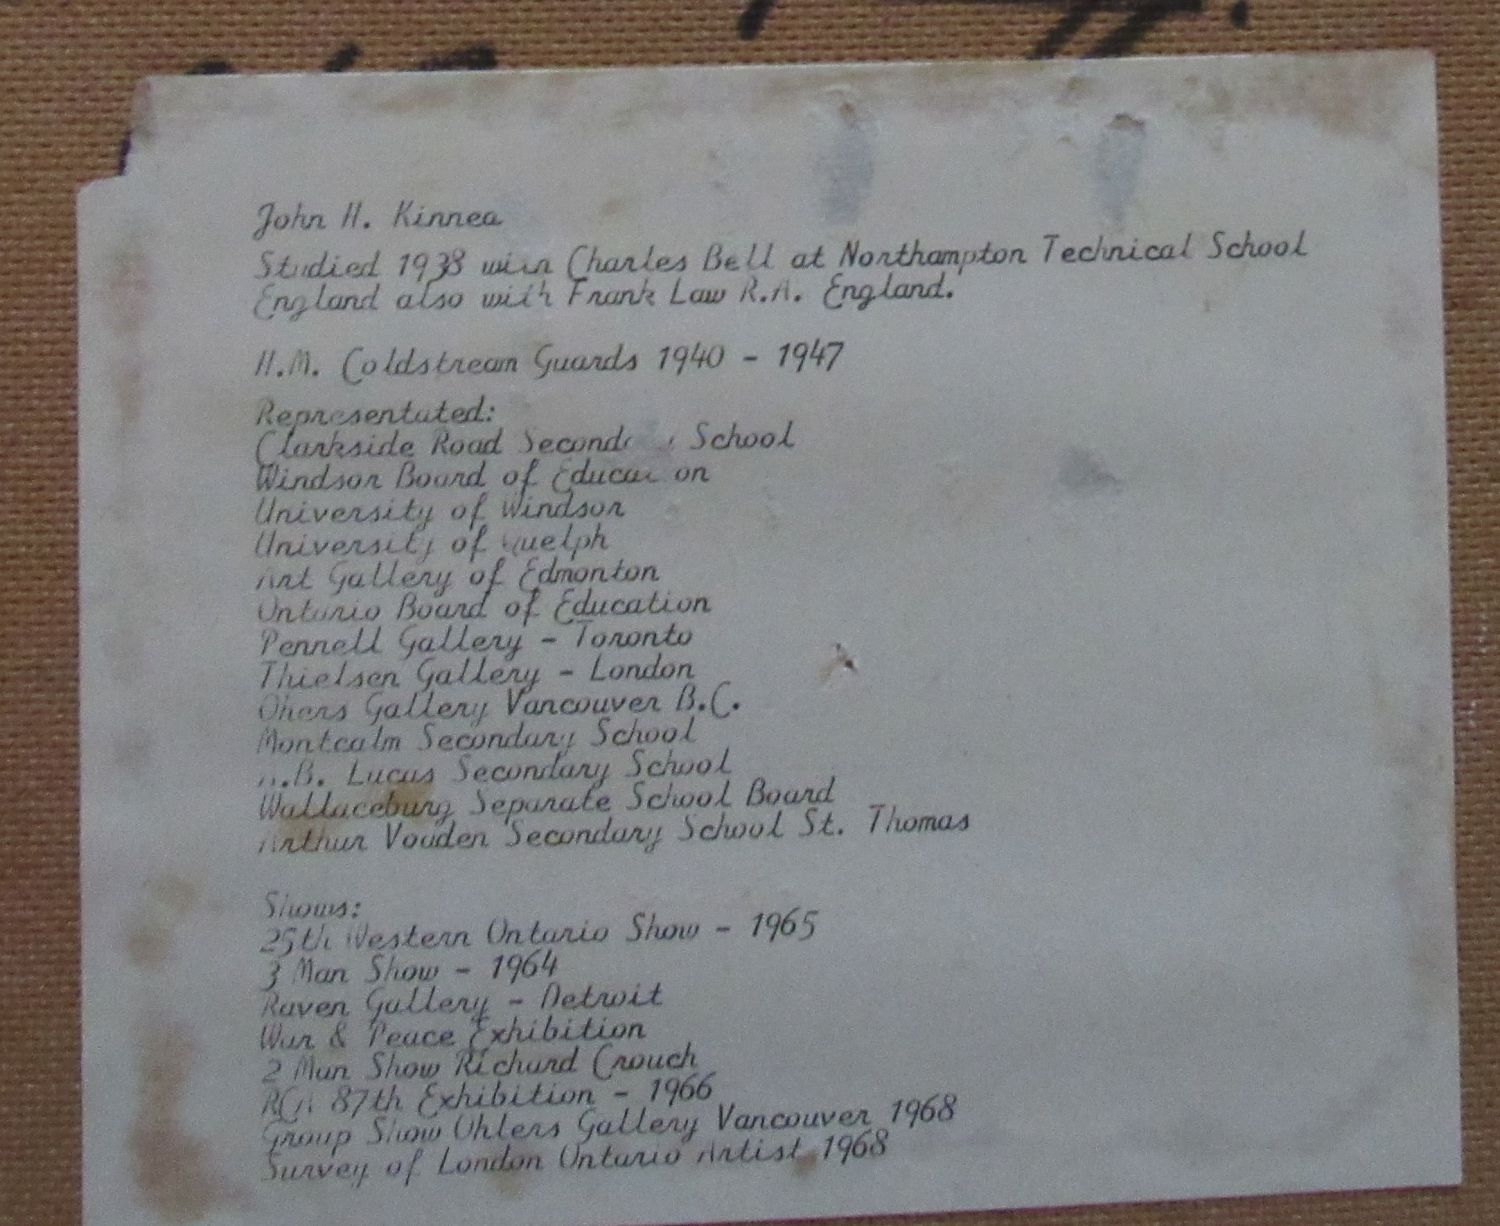 John H. Kinnea
Studied 1938 with Charles Bell at Northampton Technical School
England also with Frank Law R.A. England.
H.M. Coldstream Guards 1940 - 1947
Representated:
Clarkside Road Secondary School
Windsor Board of Education
University of Windsor
University of Guelph
Art Gallery of Edmonton
Ontario Board of Education
Pennell Gallery - Toronto
Thielsen Gallery - London
Gallery Vancouver B.C.
Montcalm Secondary School
A.B. Lucas Secondary School
Wallaceburg Separate School Board
Arthur Vouden Secondary School St. Thomas
Shows:
25th Western Ontario Show - 1965
3 Man Show - 1964
Raven Gallery - Detroit
War & Peace Exhibition
2 Man Show Richard Crouch
RCA 87th Exhibition - 1966
Group Show Ohlers Gallery Vancouver 1968
Survey of London Ontario Artist 1968